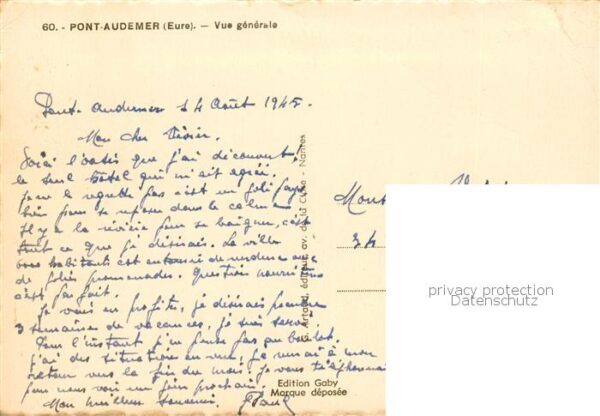 60. - PONT-AUDEMER (Eure). — Vue générale
Pont-Audemer 14 Août 1945.
Mon cher
Voici l'oasis que j'ai découvert,
le seul hôtel qui m'ait agréé.
pas c'est un joli pays
bien pour se reposer dans le calme
Il y a la rivière pour se baigner, c'est
tout ce que je désirais. La ville
habitants est entourée de verdure avec
de jolies promenades. Question nourriture
c'est parfait.
Je vais en profiter, je désirais prendre
3 semaines de vacances, je suis
Pour l'instant je ne pense pas au boulot.
J'ai des situations en vue, je verrai à mon
retour vers la fin du mois. Je vous téléphonerai
pour nous voir un jour prochain.
Mon meilleur souvenir.
Edition Gaby
Marque déposée
Artaud, éditeur, av. de la Nantes
34
privacy protection
Datenschutz